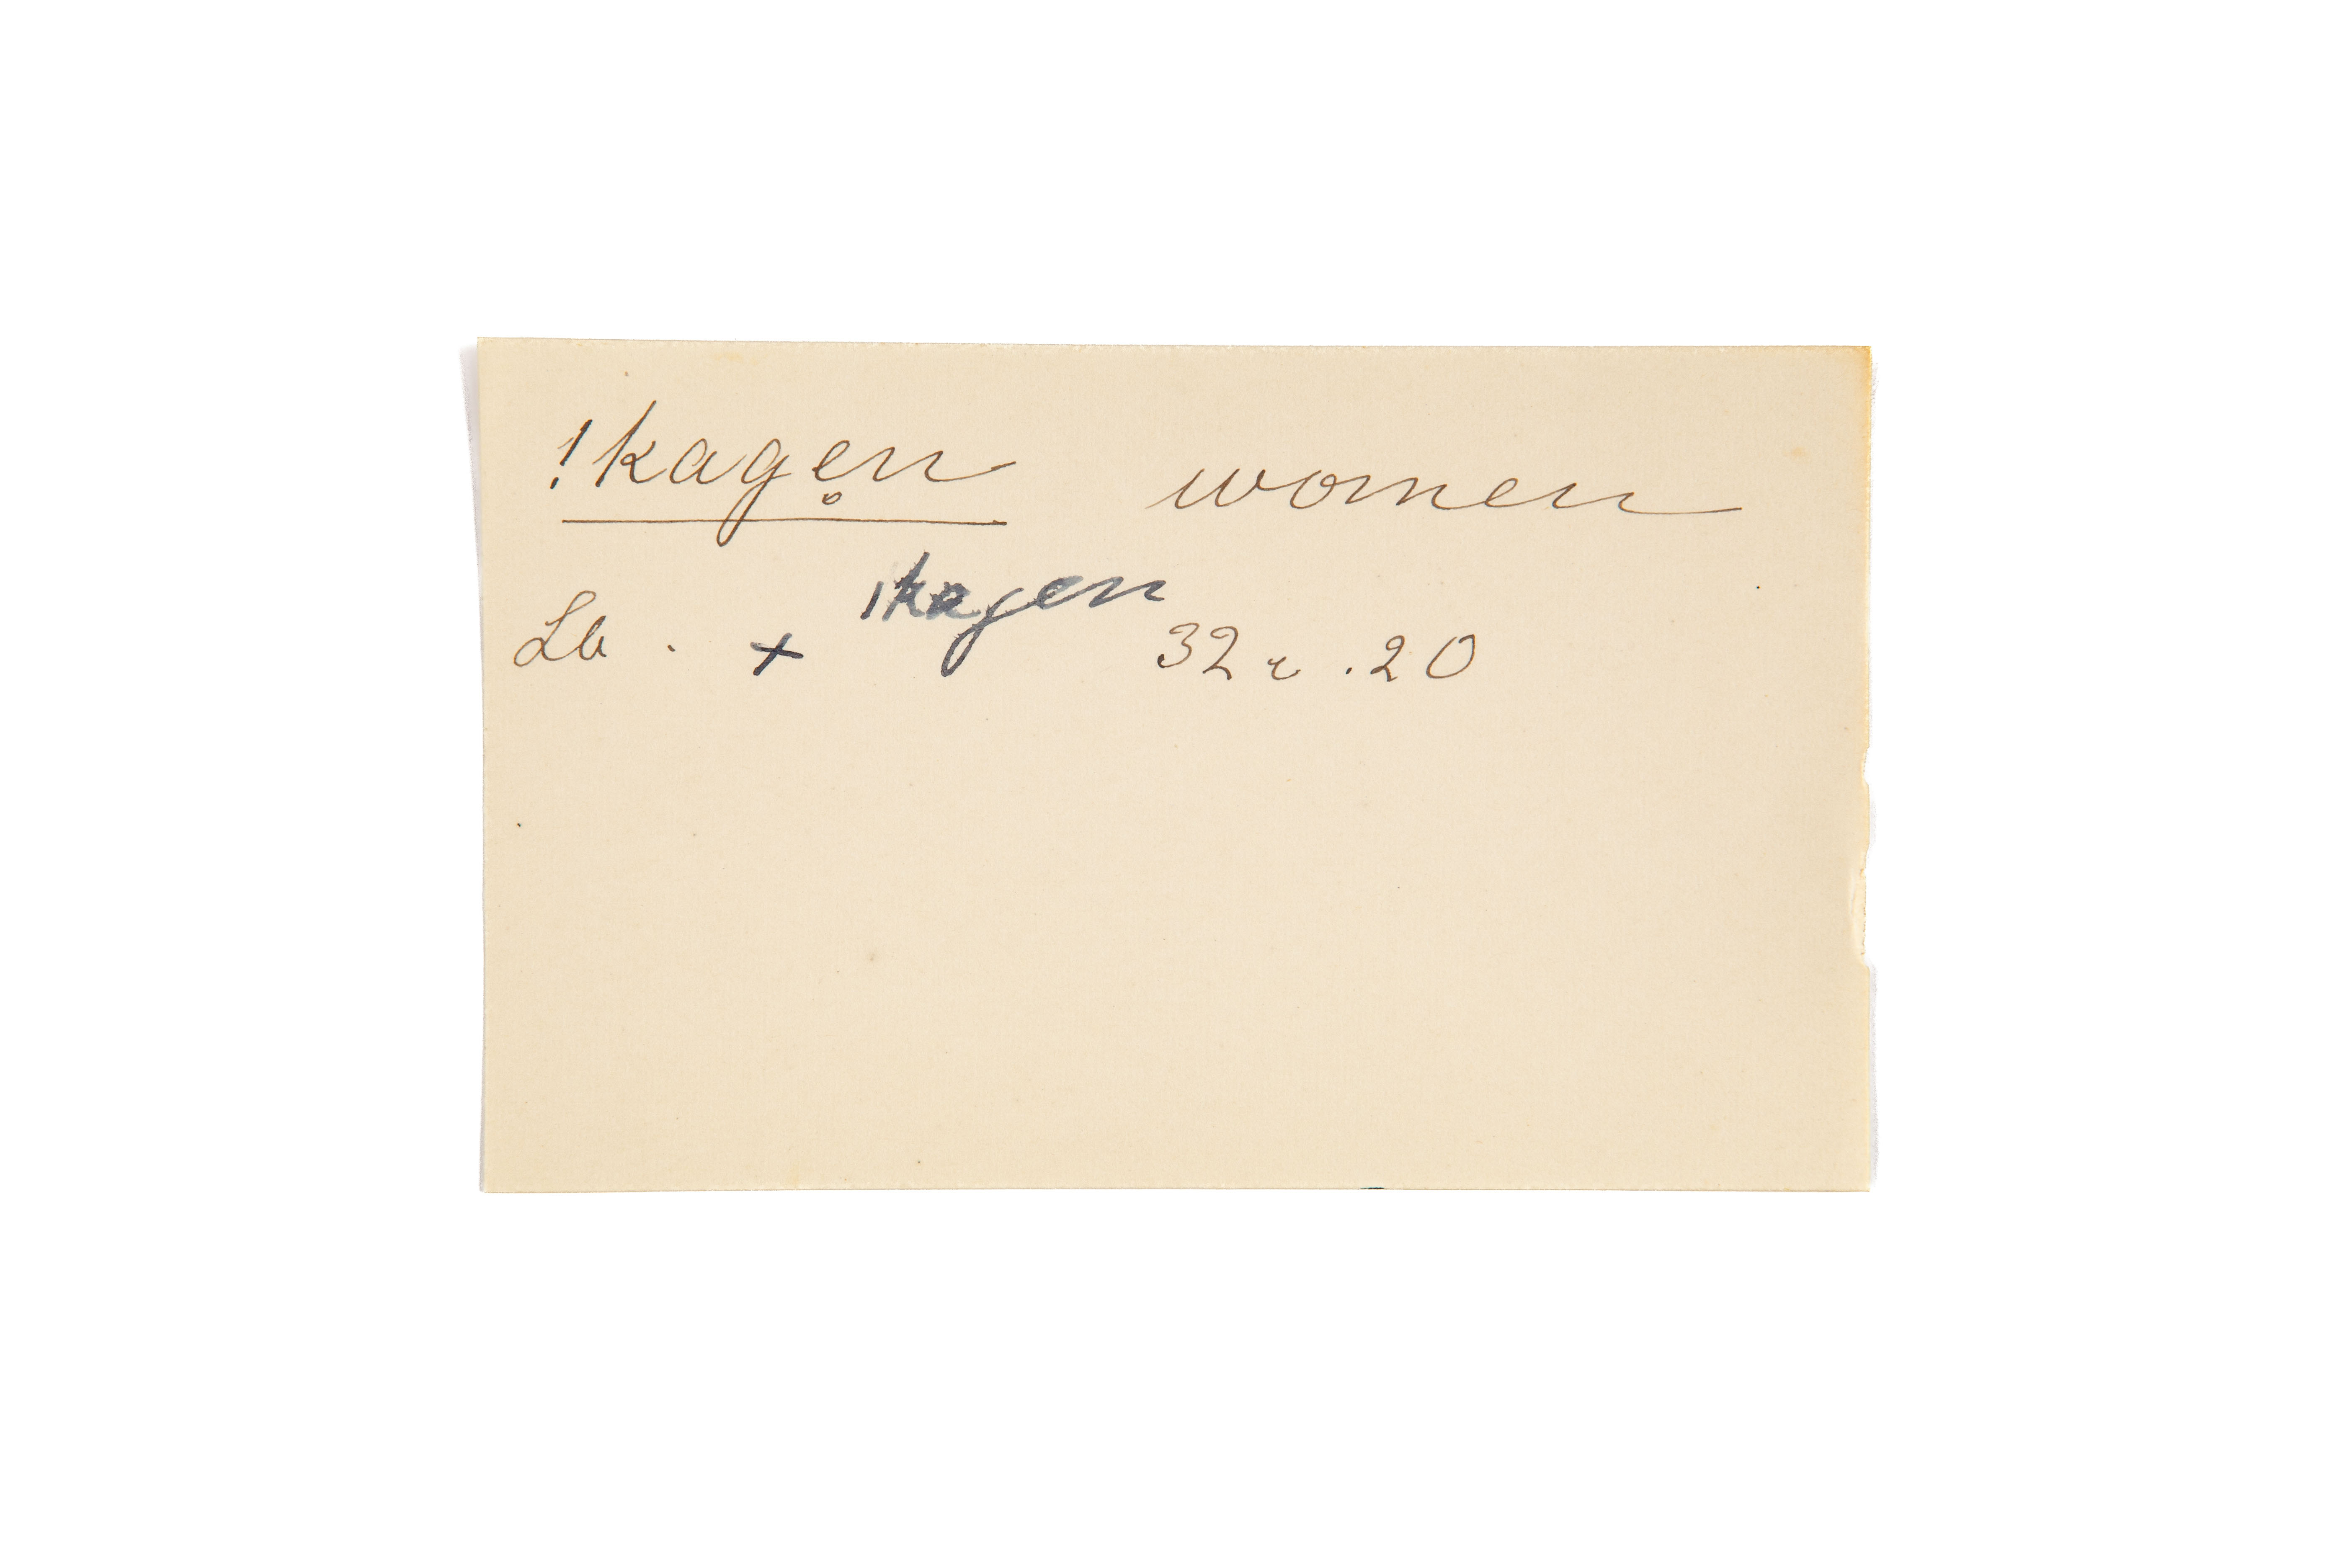 !kage̥n women
ǀkagen
La . + 32 r . 20